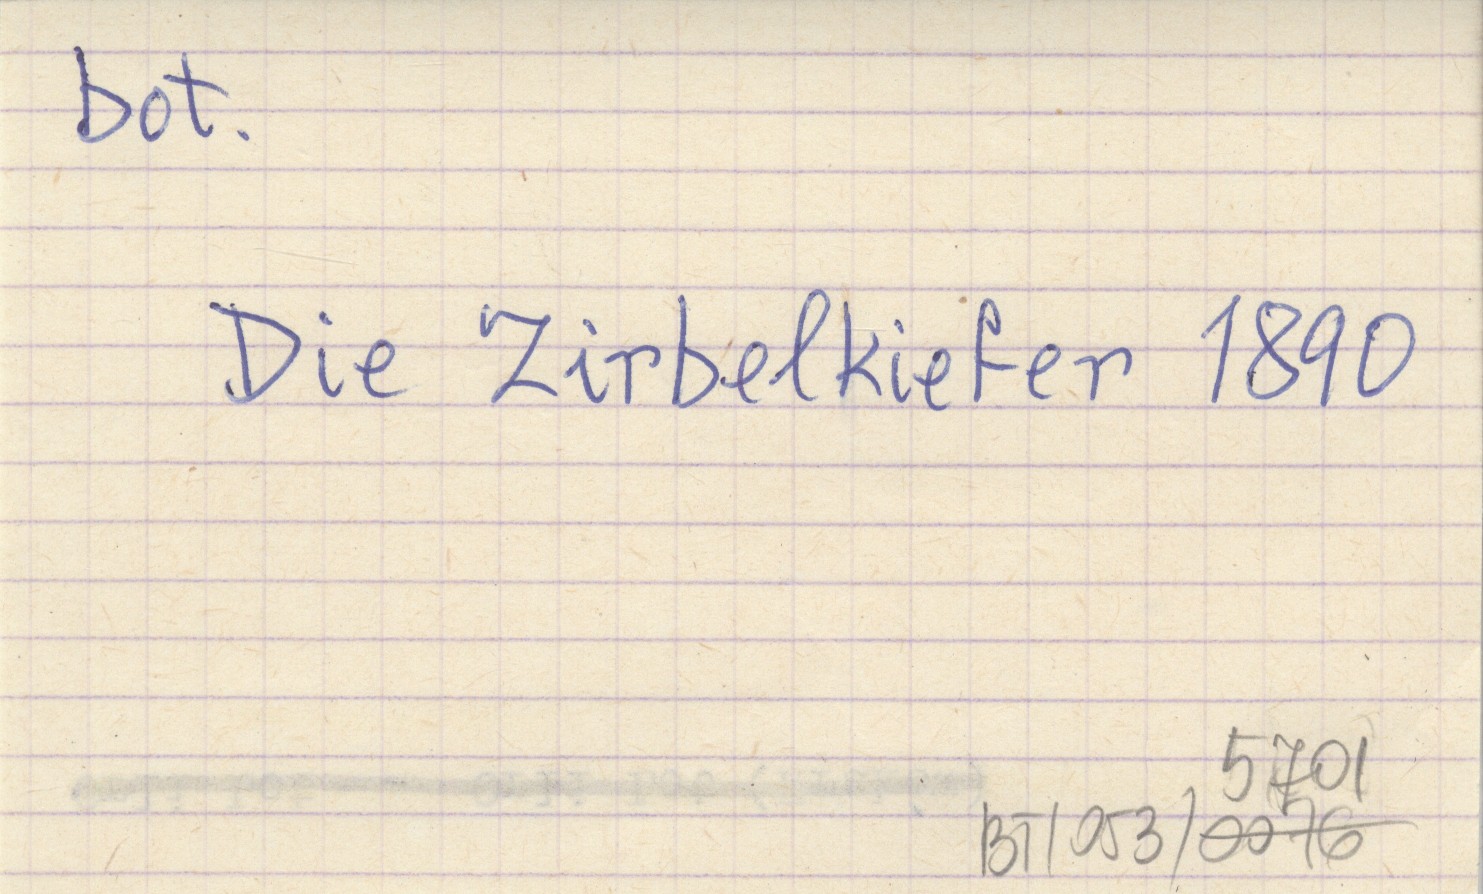 bot.
Die Zirbelkiefer 1890
5701
BT/053/0076